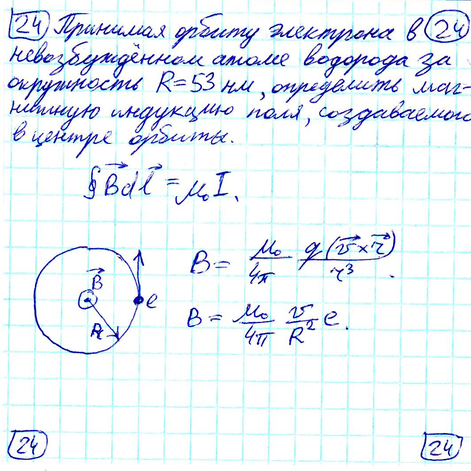 24 Принимая орбиту электрона в 24
невозбуждённом атоме водорода за
окружность R=53 нм, определить маг-
нитную индукцию поля, создаваемого
в центре орбиты.
∮B⃗dl⃗ = μ₀I.
B = μ₀/4π q(v⃗×r⃗)/r³.
B⃗
e
R
B = μ₀/4π v/R² e.
24 24